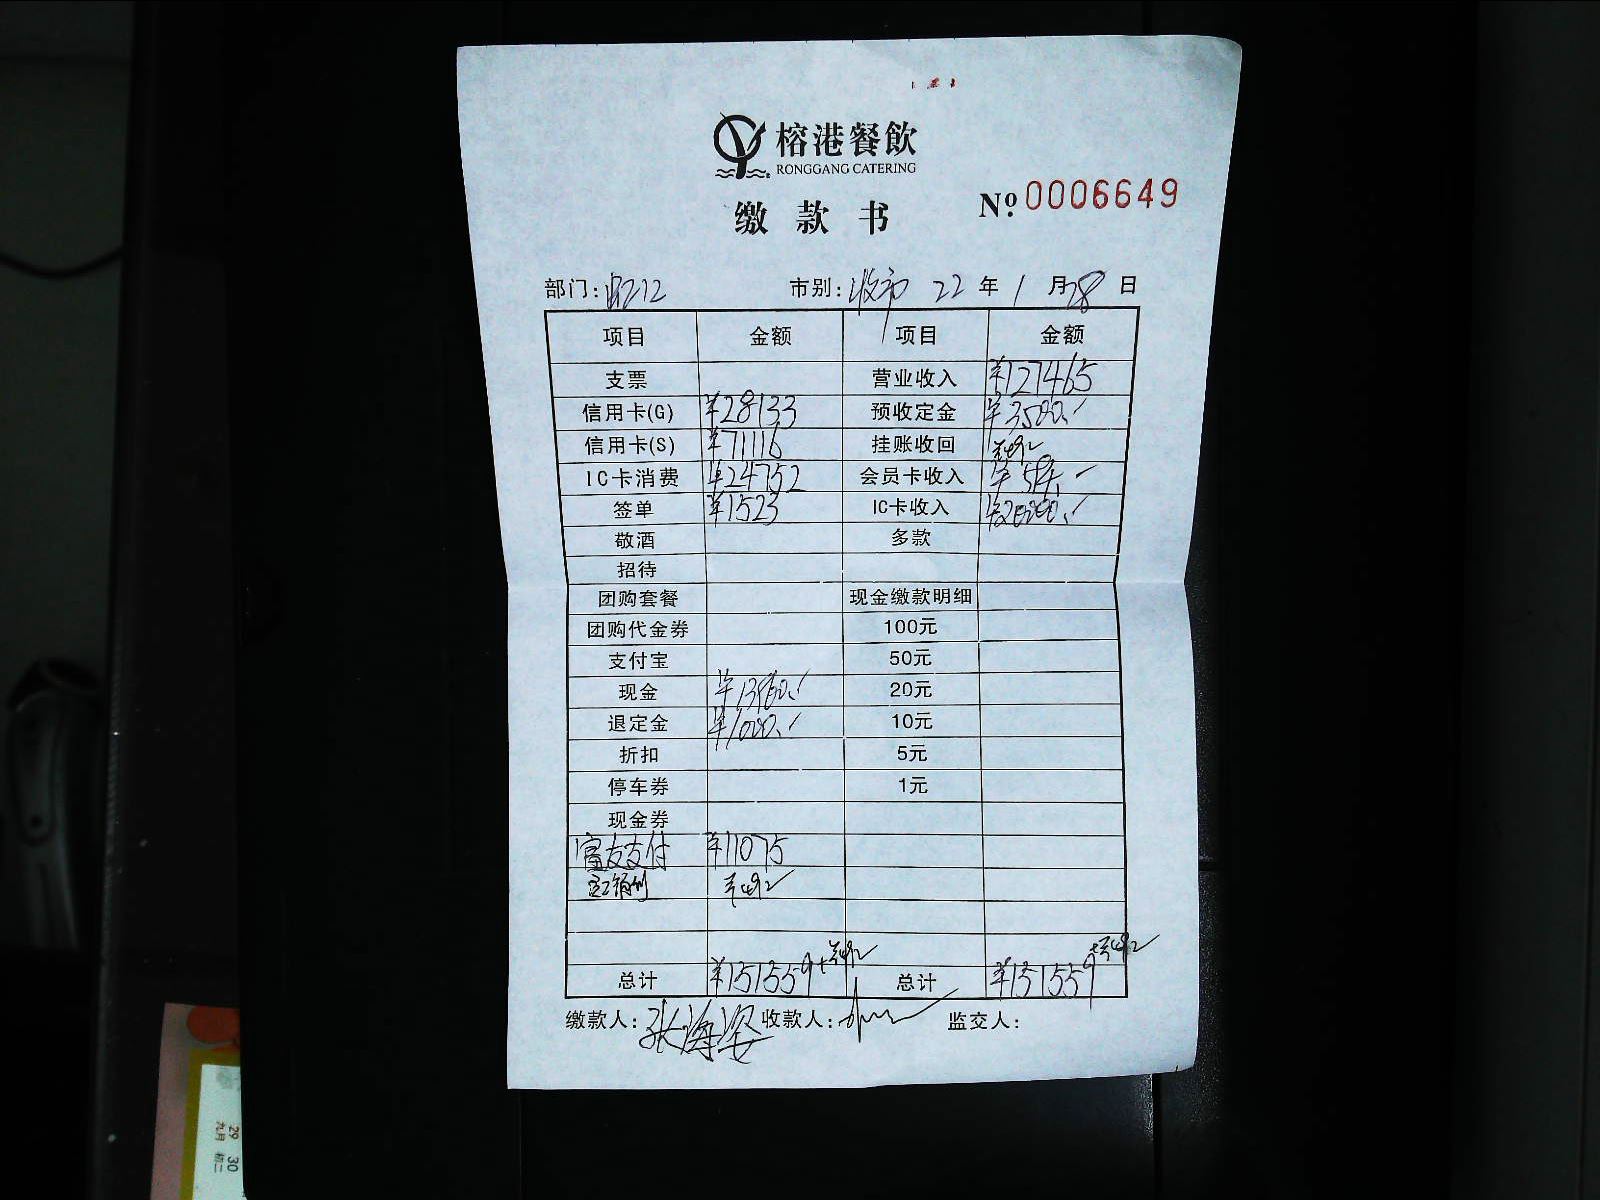 榕港餐飲
RONGGANG CATERING
缴款书 Nº 0006649
部门: 市别:收市 22年1月28日
项目 金额 项目 金额
支票 营业收入 ¥127465
信用卡(G) ¥28133 预收定金 ¥3500.
信用卡(S) ¥71116 挂账收回
IC卡消费 ¥24752 会员卡收入
签单 ¥1523 IC卡收入 ¥20000.
敬酒 多款
招待
团购套餐 现金缴款明细
团购代金券 100元
支付宝 50元
现金 ¥13960. 20元
退定金 ¥1000. 10元
折扣 5元
停车券 1元
现金券
富友支付 ¥11075
总计 ¥151559 总计 ¥151559
缴款人:张海姿 收款人: 监交人:
29 30
九月 初二